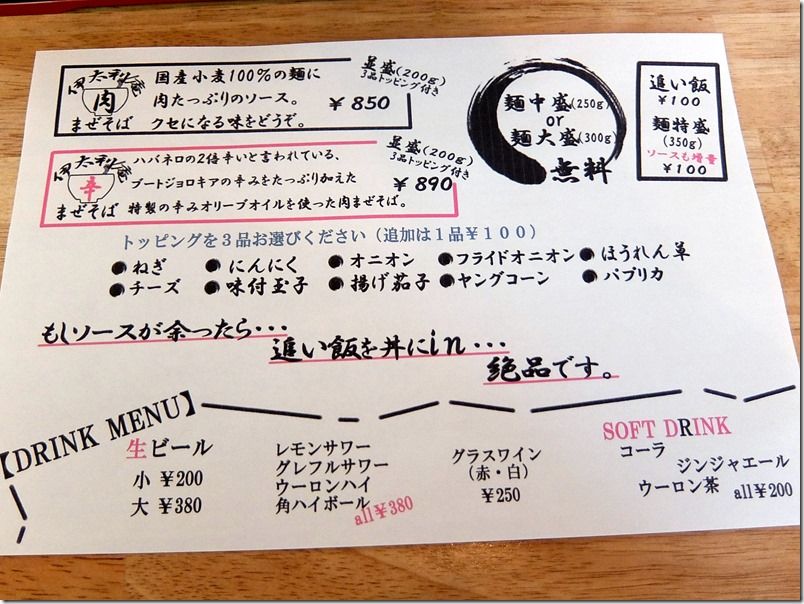 肉
まぜそば
国産小麦100%の麺に
肉たっぷりのソース。
クセになる味をどうぞ。
並盛(200g)
3品トッピング付き
¥850
辛
まぜそば
ハバネロの2倍辛いと言われている、
ブートジョロキアの辛みをたっぷり加えた
特製の辛みオリーブオイルを使った肉まぜそば。
並盛(200g)
3品トッピング付き
¥890
麺中盛(250g)
or
麺大盛(300g)
無料
追い飯
¥100
麺特盛
(350g)
ソースも増量
¥100
トッピングを3品お選びください(追加は1品¥100)
●ねぎ ●にんにく ●オニオン ●フライドオニオン ●ほうれん草
●チーズ ●味付玉子 ●揚げ茄子 ●ヤングコーン ●パプリカ
もしソースが余ったら・・・
追い飯を丼にin・・・
絶品です。
【DRINK MENU】
生ビール
小 ¥200
大 ¥380
レモンサワー
グレフルサワー
ウーロンハイ
角ハイボール
all¥380
グラスワイン
(赤・白)
¥250
SOFT DRINK
コーラ
ジンジャエール
ウーロン茶
all¥200